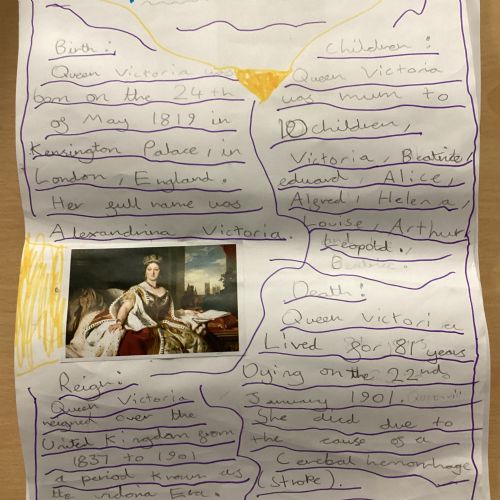 Birth:
Queen Victoria was
born on the 24th
of May 1819 in
Kensington Palace, in
London, England.
Her full name was
Alexandrina Victoria.
Reign:
Queen Victoria
reigned over the
United Kingdom from
1837 to 1901
a period known as
the victoria Era.
Children:
Queen Victoria
was mum to
10 children,
Victoria, Beatrice,
eduard, Alice,
Alfred, Helena,
Louise, Arthur
Leopold.,
Beatrice.
Death:
Queen Victoria
Lived for 81 years
Dying on the 22nd
January 1901.
She died due to
the cause of a
Cerebal hemorrhage
(Stroke).